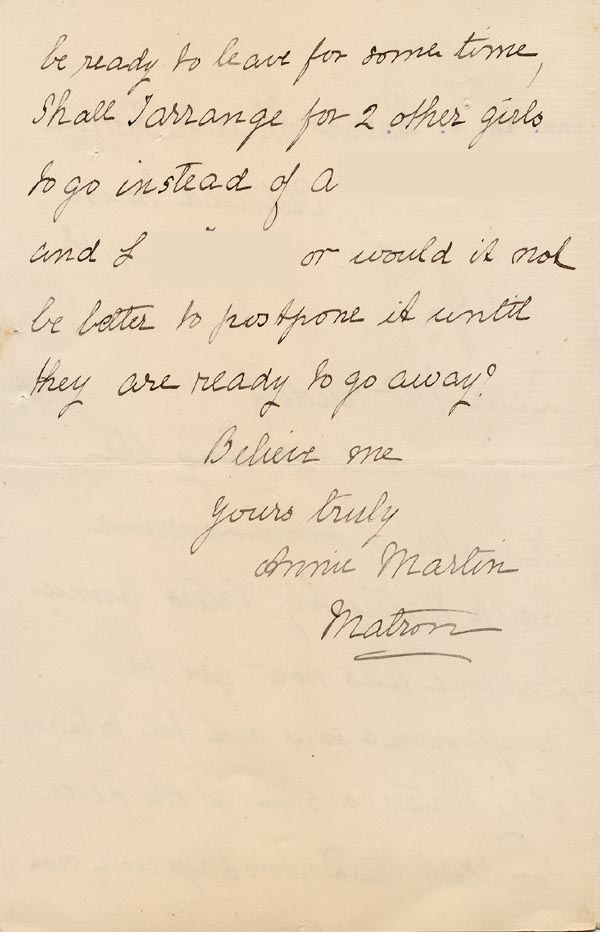 be ready to leave for some time,
Shall I arrange for 2 other girls
to go instead of A
and L or would it not
be better to postpone it until
they are ready to go away?
Believe me
Yours truly
Annie Martin
Matron